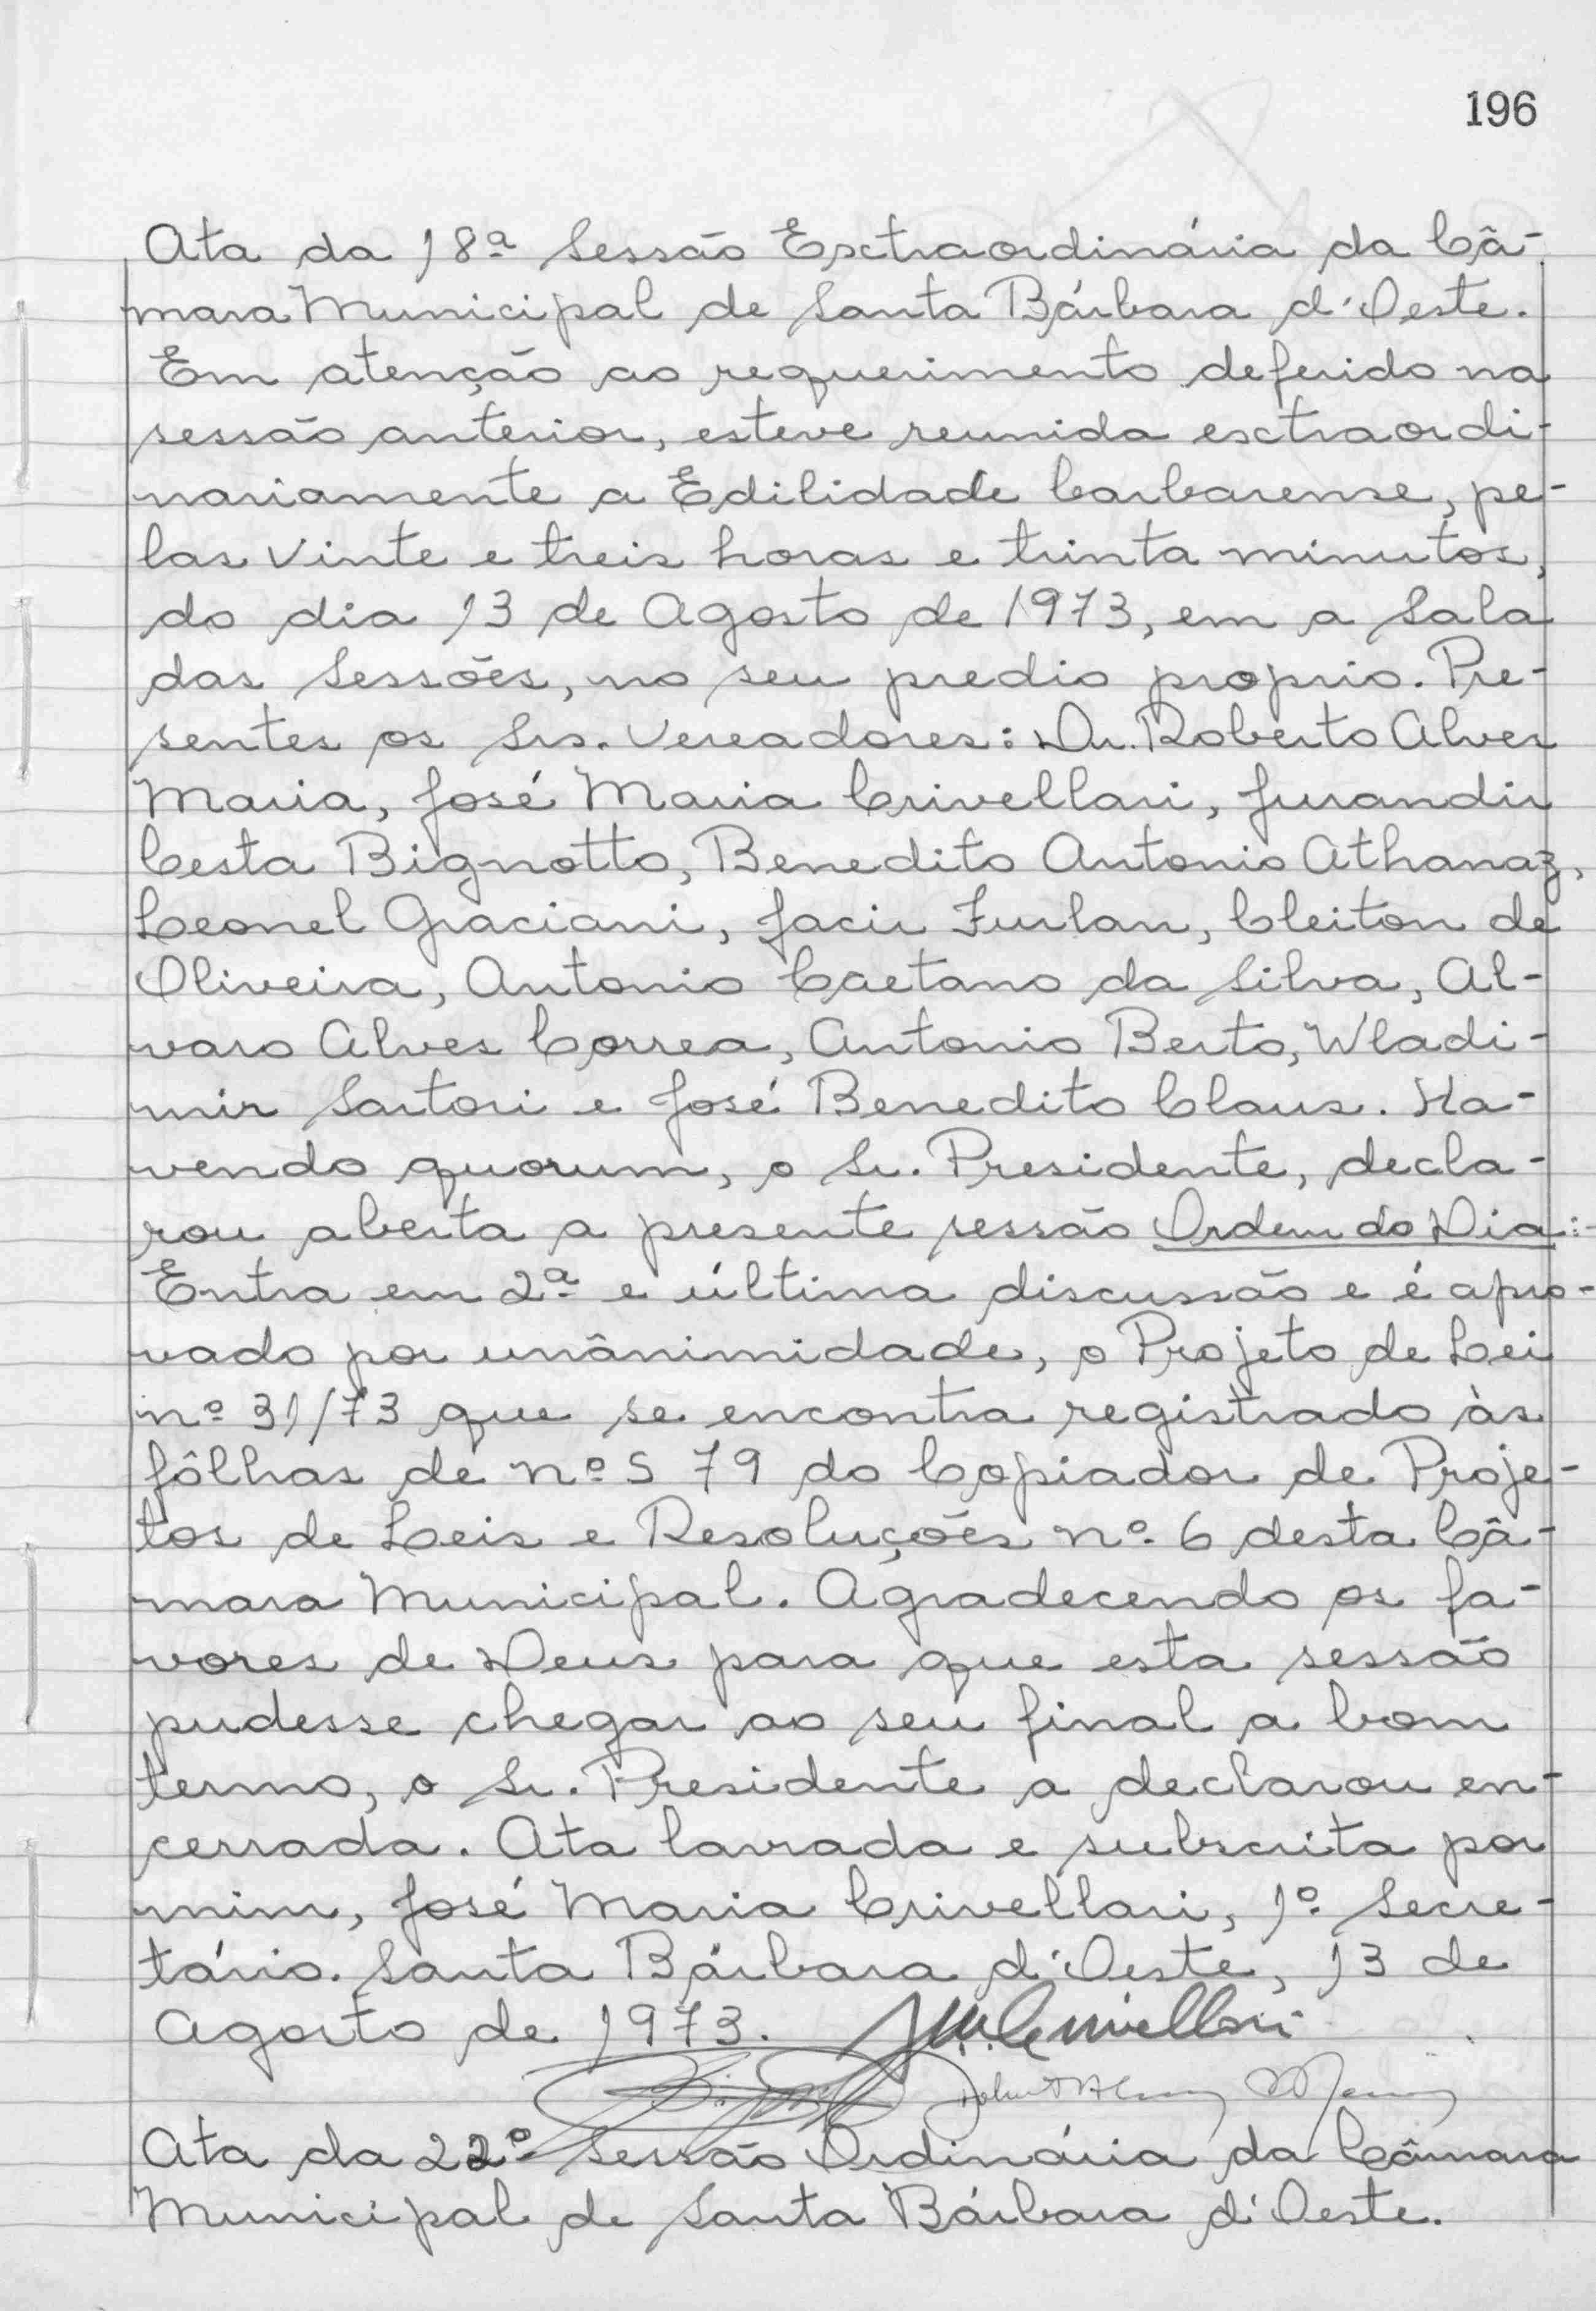 196
Ata da 18ª Sessão Extraordinária da Câ-
mara Municipal de Santa Bárbara d'Oeste.
Em atenção ao requerimento deferido na
sessão anterior, esteve reunida extraordi-
nariamente a Edilidade barbarense, pe-
las vinte e treis horas e trinta minutos,
do dia 13 de Agosto de 1973, em a Sala
das Sessões, no seu predio proprio. Pre-
sentes os Srs. Vereadores: Dr. Roberto Alves
Maria, José Maria Crivellari, Jurandir
Cesta Bignotto, Benedito Antonio Athanaz,
Leonel Graciani, Jacir Furlan, Cleiton de
Oliveira, Antonio Caetano da Silva, Al-
varo Alves Correa, Antonio Berto, Wladi-
mir Sartori e José Benedito Claus. Ha-
vendo quorum, o Sr. Presidente, decla-
rou aberta a presente sessão Ordem do Dia:-
Entra em 2ª e última discussão e é apro-
vado por unânimidade, o Projeto de Lei
nº 31/73 que se encontra registrado às
fôlhas de nºs 79 do Copiador de Proje-
tos de Leis e Resoluções nº 6 desta Câ-
mara Municipal. Agradecendo os fa-
vores de Deus para que esta sessão
pudesse chegar ao seu final a bom
termo, o Sr. Presidente a declarou en-
cerrada. Ata lavrada e subscrita por
mim, José Maria Crivellari, 1º Secre-
tário. Santa Bárbara d'Oeste, 13 de
Agosto de 1973. JMCrivellari
Roberto Alves Maria
Ata da 22º Sessão Ordinária da Câmara
Municipal de Santa Bárbara d'Oeste.